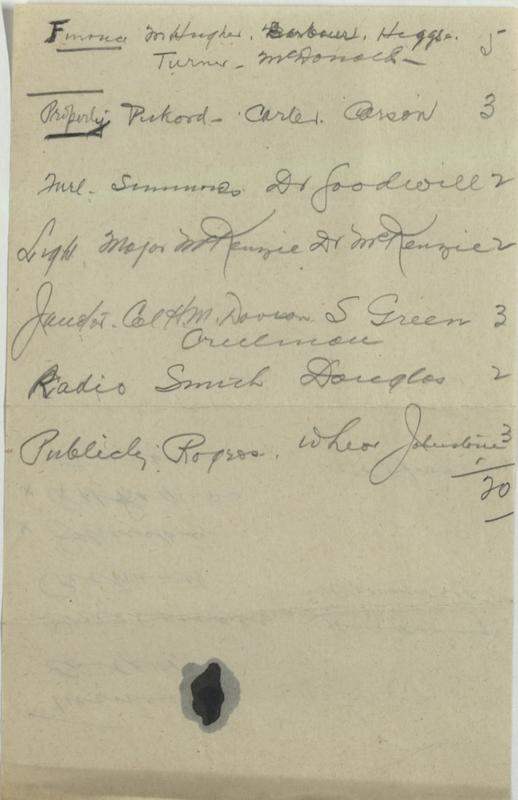 Finance McHughes. Barbour. Higgs. 5
Turner - McDonald -
Property Pickard - Carter. Carson 3
Fuel - Simmons Dr Goodwill 2
Light Major McKenzie Dr McKenzie 2
Janitor - Col H.M. Davison S Green 3
Radio Smith Douglas 2
Publicity Rogers. Johnstone 3
20